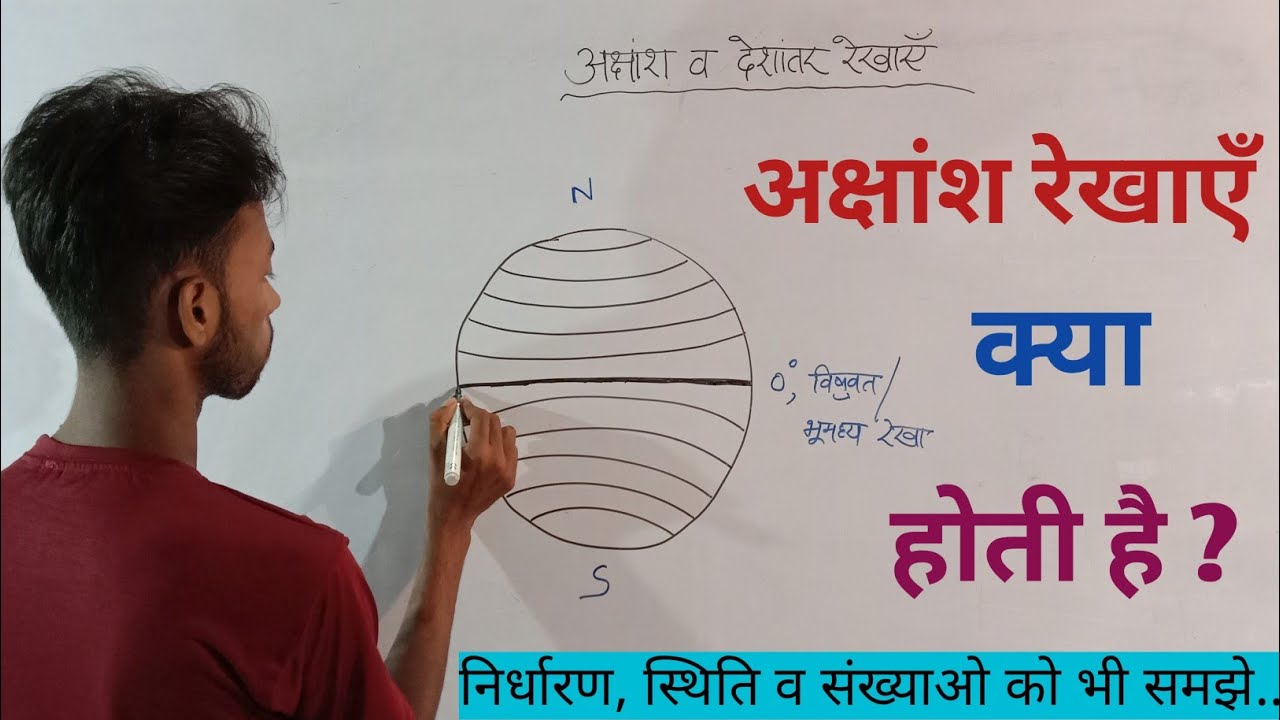 अक्षांश व देशांतर रेखाएँ
अक्षांश रेखाएँ
क्या
होती है ?
N
0°, विषुवत/
भूमध्य रेखा
S
निर्धारण, स्थिति व संख्याओ को भी समझे..